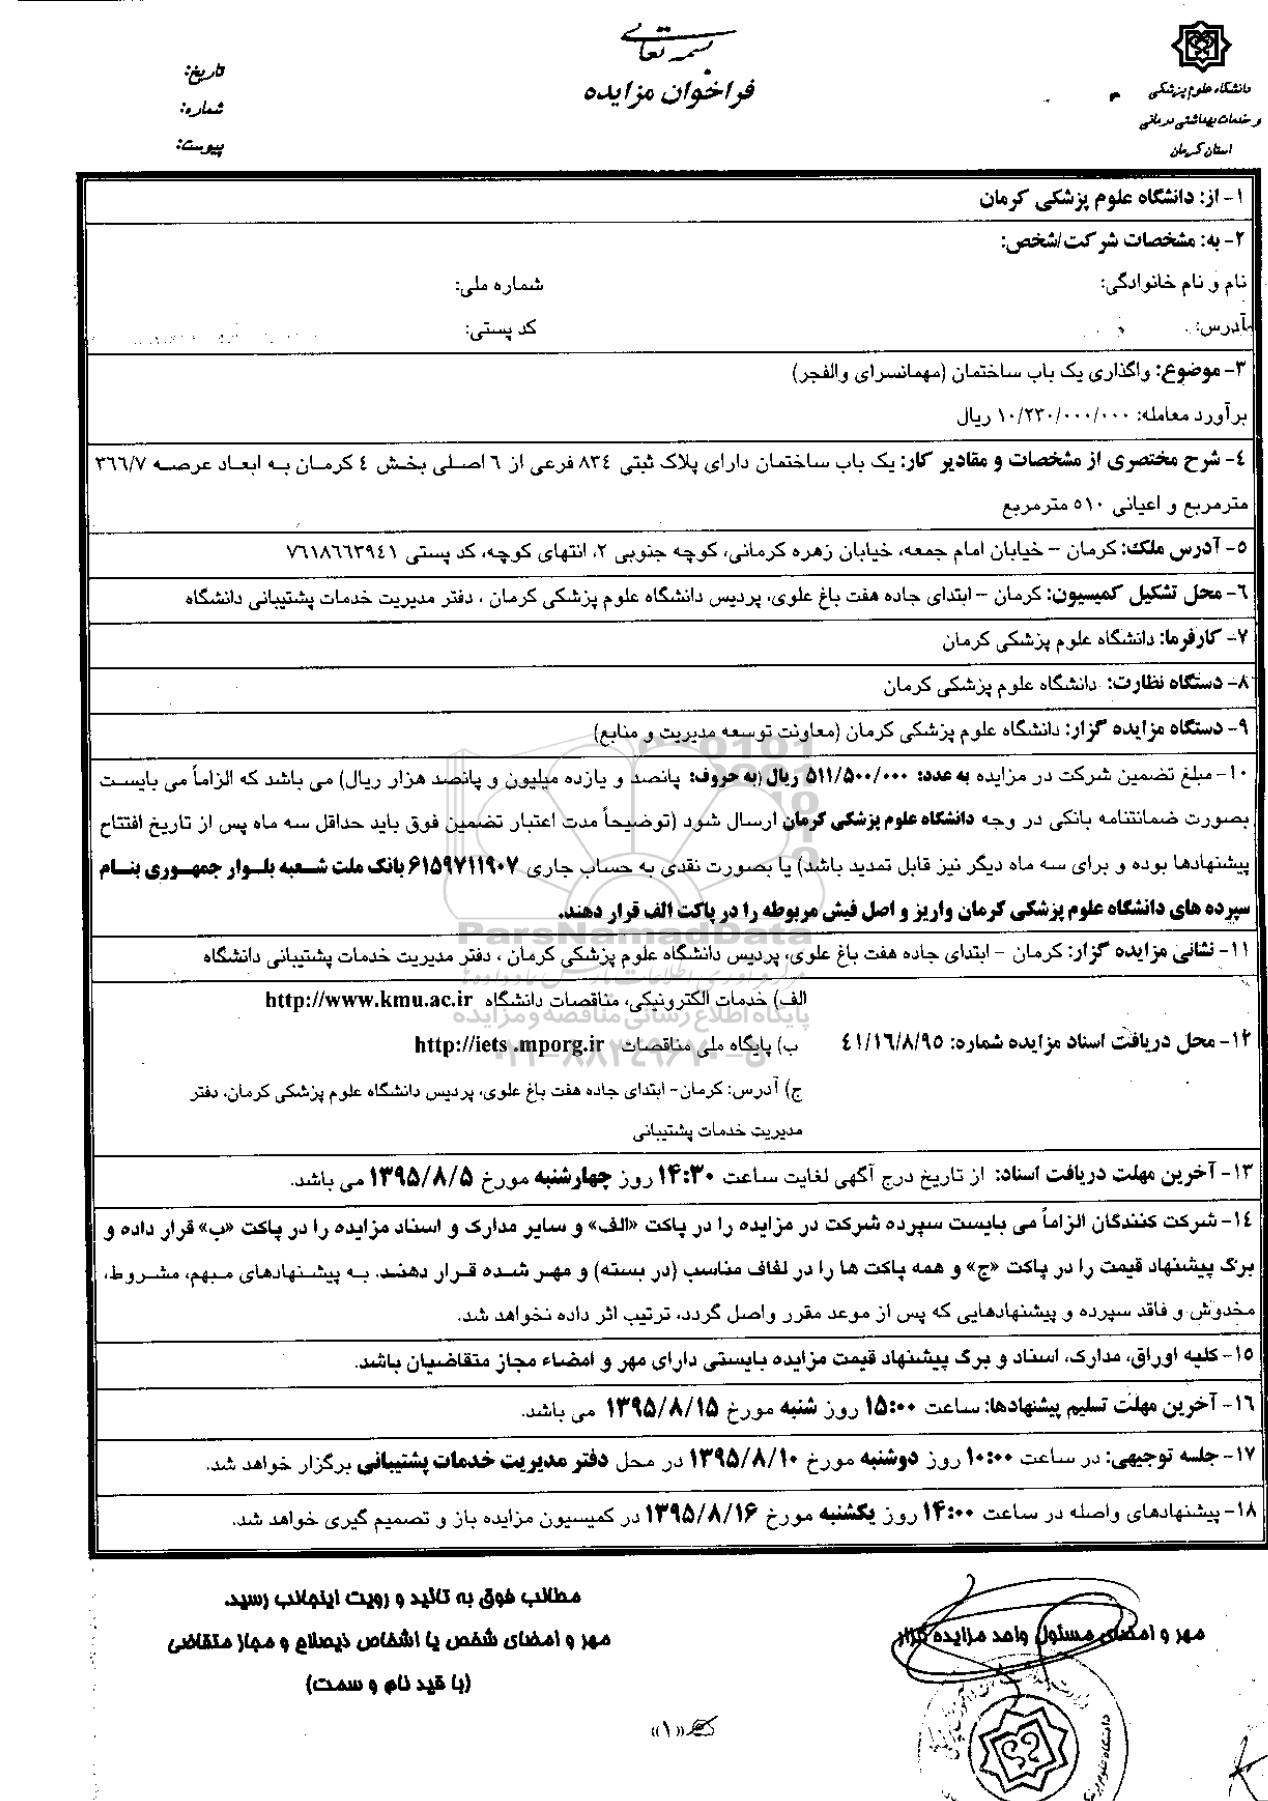 بسمه تعالی
فراخوان مزایده
دانشگاه علوم پزشکی
و خدمات بهداشتی درمانی
استان کرمان
تاریخ:
شماره:
پیوست:
۱- از: دانشگاه علوم پزشکی کرمان
۲- به: مشخصات شرکت/شخص:
نام و نام خانوادگی: شماره ملی:
آدرس: کد پستی:
۳- موضوع: واگذاری یک باب ساختمان (مهمانسرای والفجر)
برآورد معامله: ۱۰/۲۳۰/۰۰۰/۰۰۰ ریال
۴- شرح مختصری از مشخصات و مقادیر کار: یک باب ساختمان دارای پلاک ثبتی ۸۳۴ فرعی از ۶ اصلی بخش ۴ کرمان به ابعاد عرصه ۳۶۶/۷
مترمربع و اعیانی ۵۱۰ مترمربع
۵- آدرس ملک: کرمان – خیابان امام جمعه، خیابان زهره کرمانی، کوچه جنوبی ۲، انتهای کوچه، کد پستی ۷۶۱۸۶۶۳۹۴۱
۶- محل تشکیل کمیسیون: کرمان – ابتدای جاده هفت باغ علوی، پردیس دانشگاه علوم پزشکی کرمان ، دفتر مدیریت خدمات پشتیبانی دانشگاه
۷- کارفرما: دانشگاه علوم پزشکی کرمان
۸- دستگاه نظارت: دانشگاه علوم پزشکی کرمان
۹- دستگاه مزایده گزار: دانشگاه علوم پزشکی کرمان (معاونت توسعه مدیریت و منابع)
۱۰- مبلغ تضمین شرکت در مزایده به عدد: ۵۱۱/۵۰۰/۰۰۰ ریال (به حروف: پانصد و یازده میلیون و پانصد هزار ریال) می باشد که الزاماً می بایست
بصورت ضمانتنامه بانکی در وجه دانشگاه علوم پزشکی کرمان ارسال شود (توضیحاً مدت اعتبار تضمین فوق باید حداقل سه ماه پس از تاریخ افتتاح
پیشنهادها بوده و برای سه ماه دیگر نیز قابل تمدید باشد) یا بصورت نقدی به حساب جاری ۶۱۵۹۷۱۱۹۰۷ بانک ملت شعبه بلوار جمهوری بنام
سپرده های دانشگاه علوم پزشکی کرمان واریز و اصل فیش مربوطه را در پاکت الف قرار دهند.
ParsNamadData
۱۱- نشانی مزایده گزار: کرمان – ابتدای جاده هفت باغ علوی، پردیس دانشگاه علوم پزشکی کرمان ، دفتر مدیریت خدمات پشتیبانی دانشگاه
الف) خدمات الکترونیکی، مناقصات دانشگاه http://www.kmu.ac.ir
پایگاه اطلاع رسانی مناقصه و مزایده
۱۲- محل دریافت اسناد مزایده شماره: ۴۱/۱۶/۸/۹۵ ب) پایگاه ملی مناقصات http://iets .mporg.ir
۰۲۱-۸۸۳۴۹۶۷۰-۵
ج) آدرس: کرمان- ابتدای جاده هفت باغ علوی، پردیس دانشگاه علوم پزشکی کرمان، دفتر
مدیریت خدمات پشتیبانی
۱۳- آخرین مهلت دریافت اسناد: از تاریخ درج آگهی لغایت ساعت ۱۴:۳۰ روز چهارشنبه مورخ ۱۳۹۵/۸/۵ می باشد.
۱۴- شرکت کنندگان الزاماً می بایست سپرده شرکت در مزایده را در پاکت «الف» و سایر مدارک و اسناد مزایده را در پاکت «ب» قرار داده و
برگ پیشنهاد قیمت را در پاکت «ج» و همه پاکت ها را در لفاف مناسب (در بسته) و مهر شده قرار دهند. به پیشنهادهای مبهم، مشروط،
مخدوش و فاقد سپرده و پیشنهادهایی که پس از موعد مقرر واصل گردد، ترتیب اثر داده نخواهد شد.
۱۵- کلیه اوراق، مدارک، اسناد و برگ پیشنهاد قیمت مزایده بایستی دارای مهر و امضاء مجاز متقاضیان باشد.
۱۶- آخرین مهلت تسلیم پیشنهادها: ساعت ۱۵:۰۰ روز شنبه مورخ ۱۳۹۵/۸/۱۵ می باشد.
۱۷- جلسه توجیهی: در ساعت ۱۰:۰۰ روز دوشنبه مورخ ۱۳۹۵/۸/۱۰ در محل دفتر مدیریت خدمات پشتیبانی برگزار خواهد شد.
۱۸- پیشنهادهای واصله در ساعت ۱۴:۰۰ روز یکشنبه مورخ ۱۳۹۵/۸/۱۶ در کمیسیون مزایده باز و تصمیم گیری خواهد شد.
مهر و امضای مسئول واحد مزایده گزار
مطالب فوق به تائید و رویت اینجانب رسید.
مهر و امضای شخص یا اشخاص ذیصلاح و مجاز متقاضی
(با قید نام و سمت)
«۱»